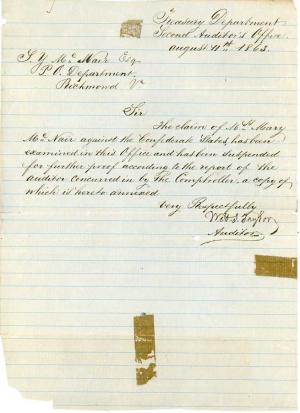 Treasury Department
Second Auditor's Office
August 11th 1863.
S. Y. McNair Esq
P.O. Department
Richmond Va
Sir
The claim of Mary
McNair against the Confederate States, has been
examined in this Office and has been suspended
for further proof according to the report of the
auditor concurred in by the Comptroller, a copy of
which is hereto annexed
Very Respectfully
W. H. S. Taylor
Auditor